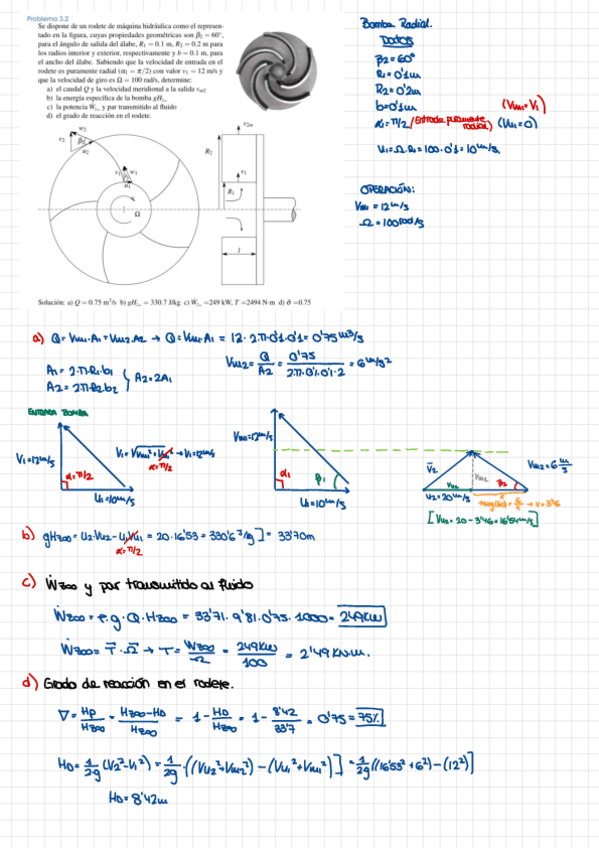 Problema 3.2
Se dispone de un rodete de máquina hidráulica como el represen-
tado en la figura, cuyas propiedades geométricas son β₂ = 60°,
para el ángulo de salida del álabe, R₁ = 0.1 m, R₂ = 0.2 m para
los radios interior y exterior, respectivamente y b = 0.1 m, para
el ancho del álabe. Sabiendo que la velocidad de entrada en el
rodete es puramente radial (α₁ = π/2) con valor v₁ = 12 m/s y
que la velocidad de giro es Ω = 100 rad/s, determine:
a) el caudal Q y la velocidad meridional a la salida vₘ₂
b) la energía específica de la bomba gHₜ∞
d) el grado de reacción en el rodete.
Bomba Radial.
DATOS
β₂ = 60°
R₁ = 0'1m
R₂ = 0'2m
b = 0'1m
(Vm₁ = V₁)
α₁ = π/2 (Entrada puramente radial) (Vu₁ = 0)
U₁ = Ω·R₁ = 100·0'1 = 10 m/s
OPERACIÓN:
Vm₁ = 12 m/s
Ω = 100 rad/s
w₂
v₂
β₂
α₂
v₁
w₁
Ω
v₂ₘ
R₂
v₁
R₁
l
a) Q = Vm₁·A₁ = Vm₂·A₂ → Q = Vm₁·A₁ = 12·2·π·0'1·0'1 = 0'75 m³/s
A₁ = 2·π·R₁·b₁
A₂ = 2·π·R₂·b₂ } A₂ = 2A₁
Vm₂ = Q/A₂ = 0'75/(2·π·0'1·0'1·2) = 6 m/s²
ENTRADA BOMBA
V₁ = 12 m/s
α = π/2
U₁ = 10 m/s
V₁ = √(Vm₁² + Vu₁²) → V₁ = 12 m/s
α = π/2
Vm₁ = 12 m/s
α₁
β₁
U₁ = 10 m/s
V₂
Vm₂
Vm₂ = 6 m/s
Vu₂
β₂
U₂ = 20 m/s
x
tang(60) = 6/x → x = 3'46
[Vu₂ = 20 - 3'46 = 16'54 m/s]
b) gHz∞ = U₂·Vu₂ - U₁·Vu₁ = 20·16'53 = 330'6 J/kg] = 33'70m
α = π/2
c) Ẇz∞ y par transmitido al fluido
Ẇz∞ = ρ·g·Q·Hz∞ = 33'71·9'81·0'75·1000 = 249KW
Ẇz∞ = T·Ω → T = Wz∞/Ω = 249KW/100 = 2'49 KN·m.
d) Grado de reacción en el rodete.
∇ = Hp/Hz∞ = (Hz∞ - HD)/Hz∞ = 1 - HD/Hz∞ = 1 - 8'42/33'7 = 0'75 = 75%
HD = 1/2g (V₂² - V₁²) = 1/2g ·[(Vu₂² + Vm₂²) - (Vu₁² + Vm₁²)] = 1/2g [(16'53² + 6²) - (12²)]
HD = 8'42m